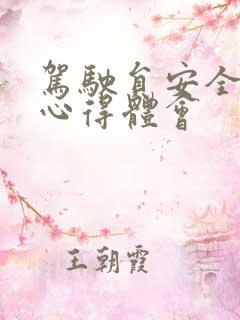 駕駛自安全
心得體會
王朝霞